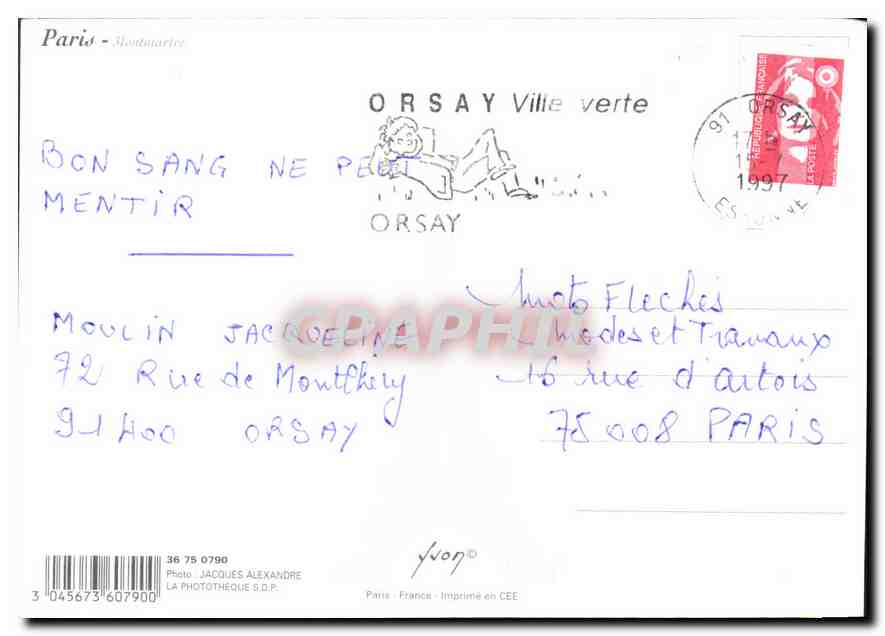 Paris - Montmartre
ORSAY Ville verte
ORSAY
91 ORSAY
1997
ESSONNE
REPUBLIQUE FRANÇAISE
LA POSTE
BON SANG NE PEUT
MENTIR
MOULIN JACQUELINE
72 Rue de Montlhéry
91400 ORSAY
Mots Flechés
Modes et Travaux
16 rue d'artois
75008 PARIS
GRAPHIL
36 75 0790
Photo : JACQUES ALEXANDRE
LA PHOTOTHEQUE S.D.P.
3 045673 607900
yvon©
Paris - France - Imprimé en CEE